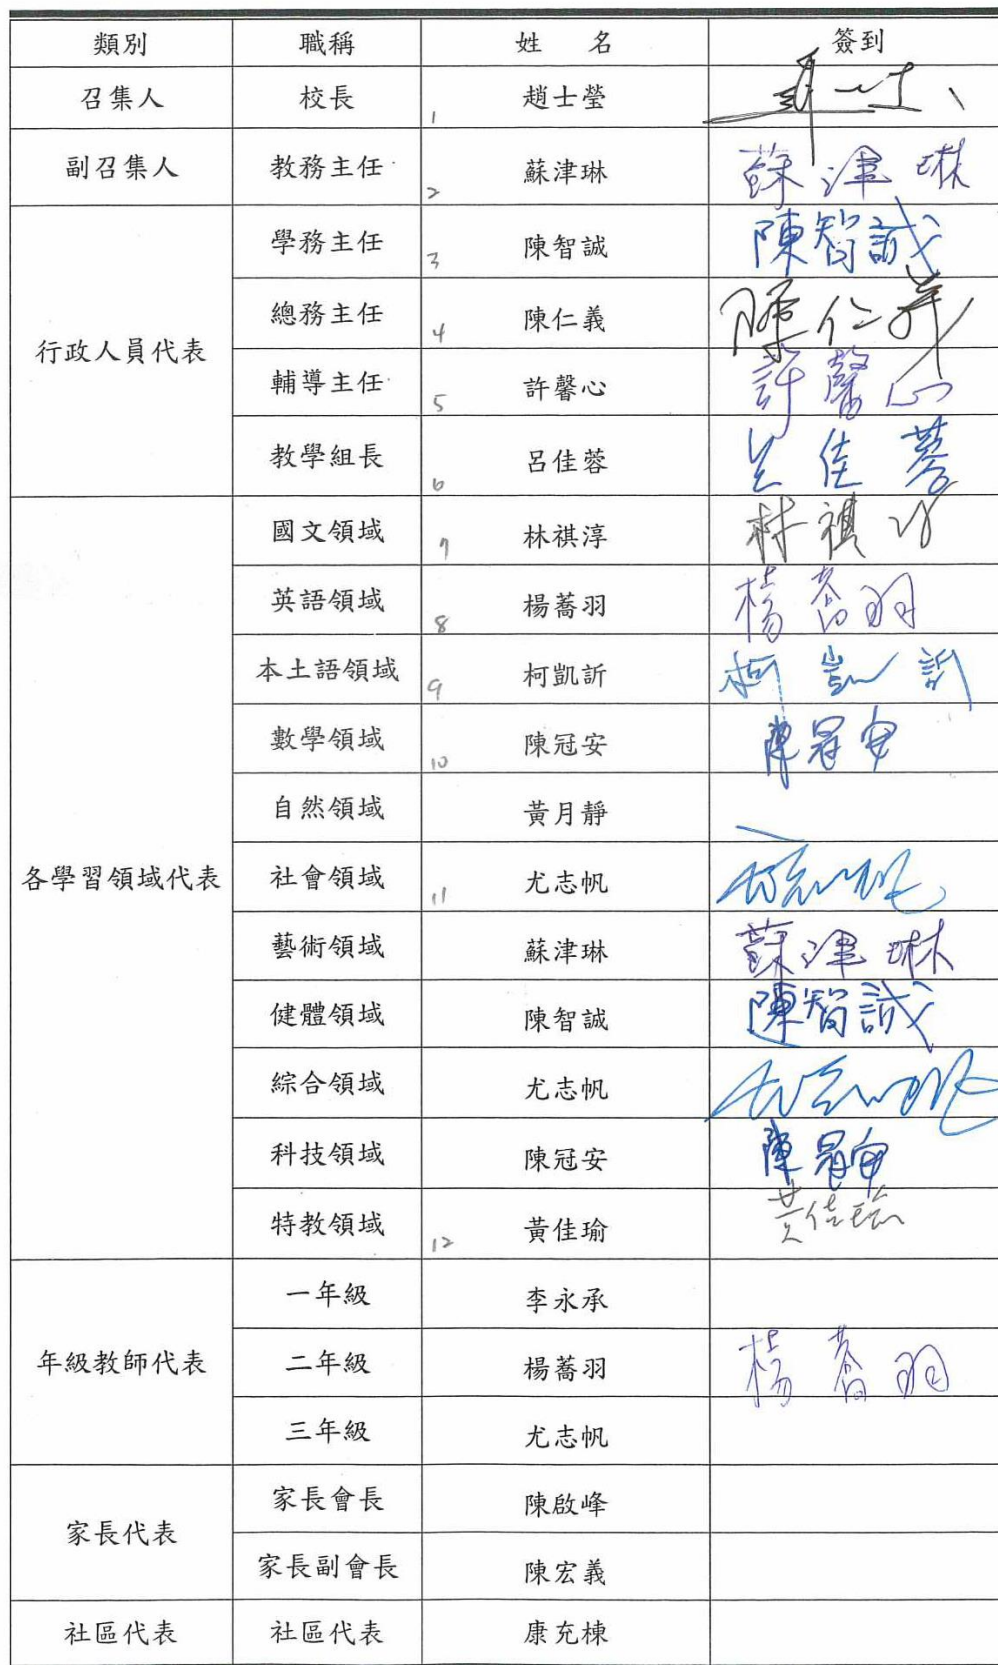 類別 職稱 姓 名 簽到
召集人 校長 1 趙士瑩
副召集人 教務主任 2 蘇津琳 蘇津琳
行政人員代表 學務主任 3 陳智誠 陳智誠
總務主任 4 陳仁義 陳仁義
輔導主任 5 許馨心 許馨心
教學組長 6 呂佳蓉 呂佳蓉
各學習領域代表 國文領域 7 林祺淳 林祺
英語領域 8 楊蕎羽 楊蕎羽
本土語領域 9 柯凱訢 柯凱訢
數學領域 10 陳冠安 陳冠安
自然領域 黃月靜
社會領域 11 尤志帆
藝術領域 蘇津琳 蘇津琳
健體領域 陳智誠 陳智誠
綜合領域 尤志帆
科技領域 陳冠安 陳冠安
特教領域 12 黃佳瑜 黃佳瑜
年級教師代表 一年級 李永承
二年級 楊蕎羽 楊蕎羽
三年級 尤志帆
家長代表 家長會長 陳啟峰
家長副會長 陳宏義
社區代表 社區代表 康充棟